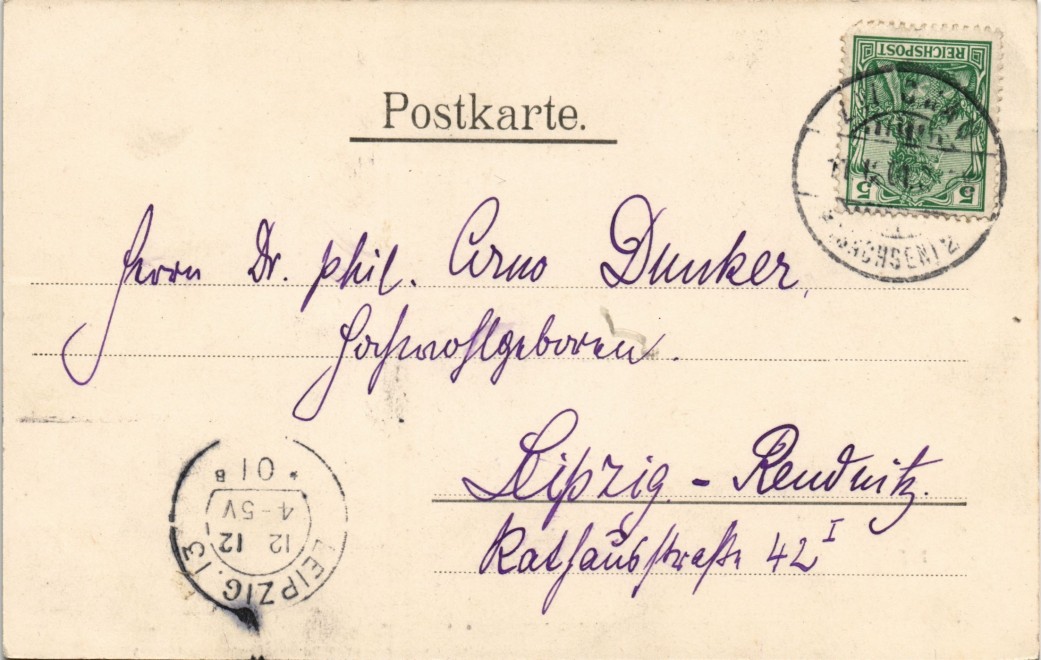 REICHSPOST
5 5
Postkarte.
(SACHSEN)
Herrn Dr. phil. Arno Dunker,
Hochwohlgeboren.
Leipzig - Reudnitz.
Rathausstraße 42 I
LEIPZIG. 13
12 12
4-5V
* 01 B